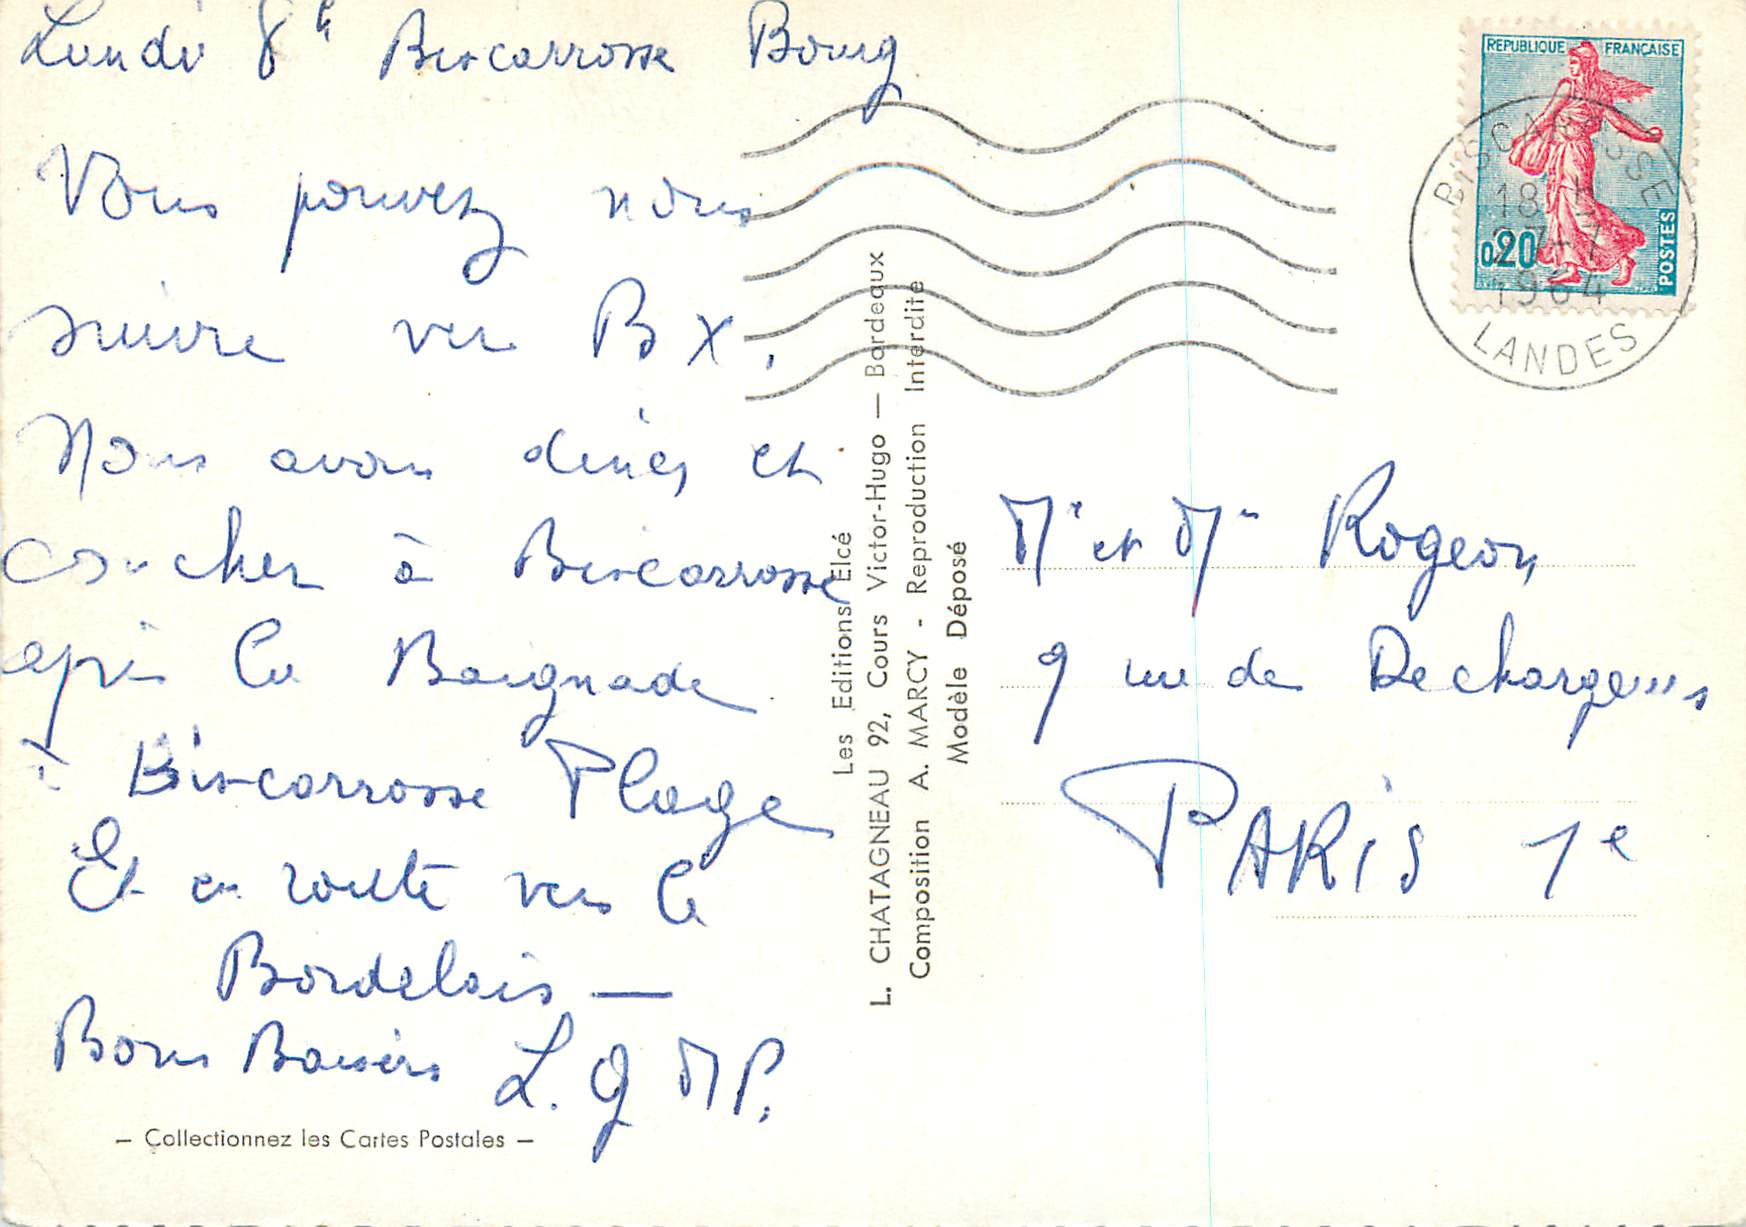 Lundi 8h Biscarrosse Bourg
Vous pouvez nous
suivre vers BX.
Nous avons dinés et
coucher à Biscarrosse
après la Baignade
à Biscarrosse Plage
Et en route vers le
Bordelais —
Bons Baisers L. G MP.
— Collectionnez les Cartes Postales —
Les Editions Elcé
L. CHATAGNEAU 92, Cours Victor-Hugo — Bordeaux
Composition A. MARCY - Reproduction Interdite
Modèle Déposé
REPUBLIQUE FRANÇAISE
0,20
POSTES
BISCARROSSE
18 H
27-7
1964
LANDES
Mr et Mme Rogeon
9 rue de Dechargeurs
PARIS 1e